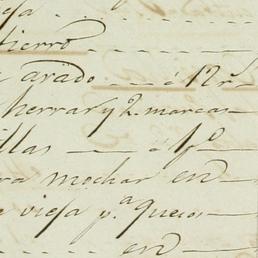 fierro
arado - á 12 r.
herrar y 2 marcas
illas - á 1 p.
ra mochar en
vieja p.a quesos
en